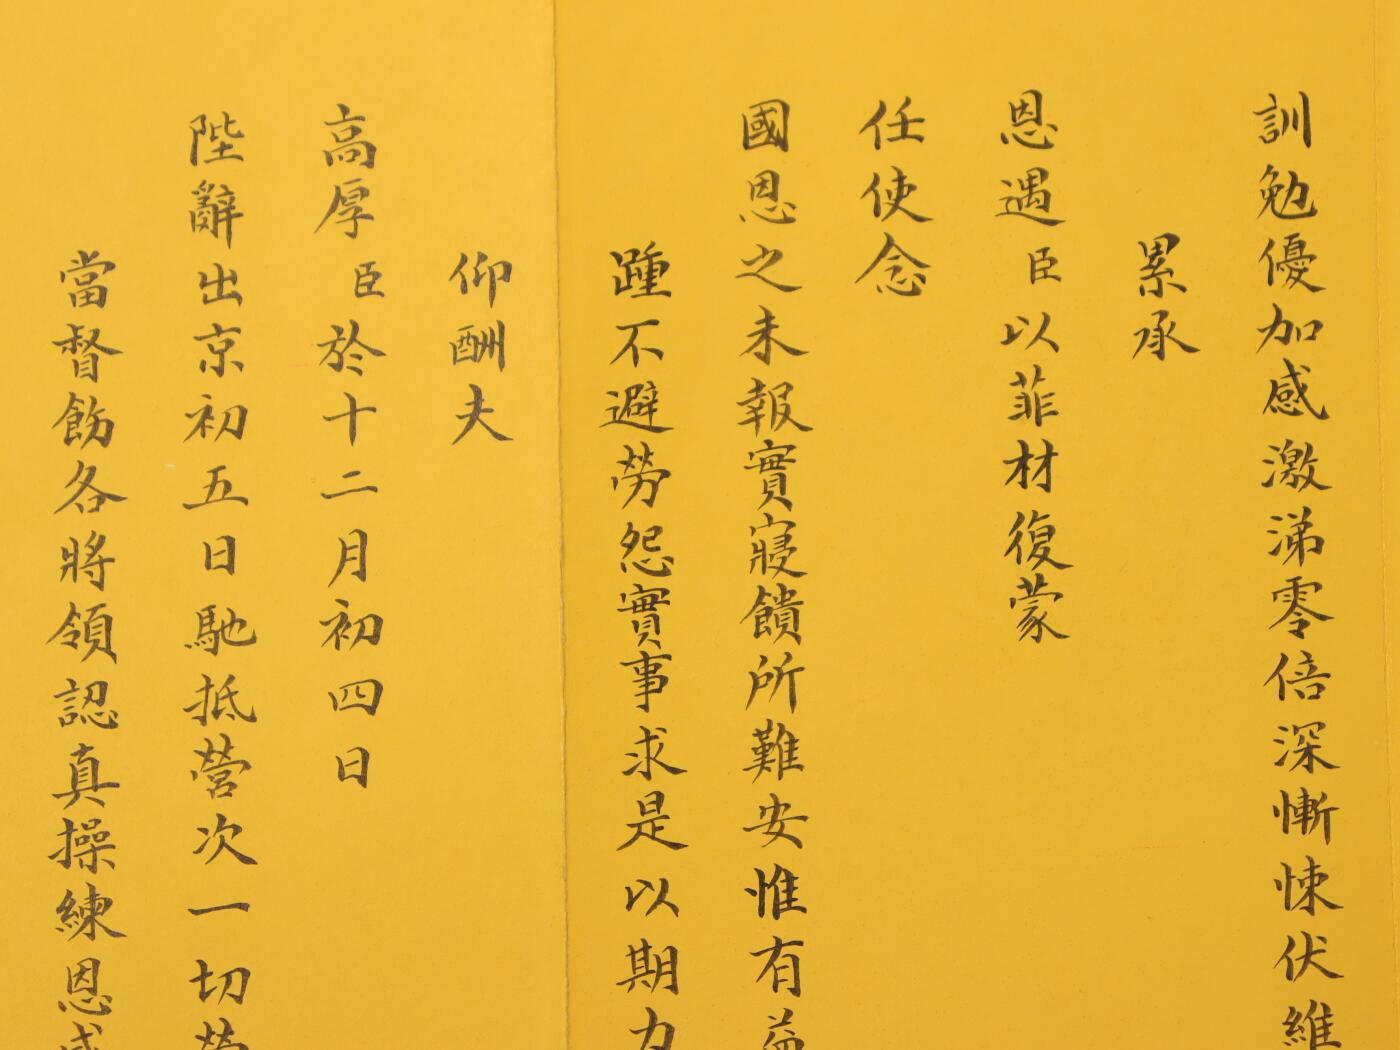 訓勉優加感激涕零倍深慚悚伏維
累承
恩遇臣以菲材復蒙
任使念
國恩之未報實寢饋所難安惟有益
踵不避勞怨實事求是以期力
仰酬夫
高厚臣於十二月初四日
陛辭出京初五日馳抵營次一切
當督飭各將領認真操練恩威